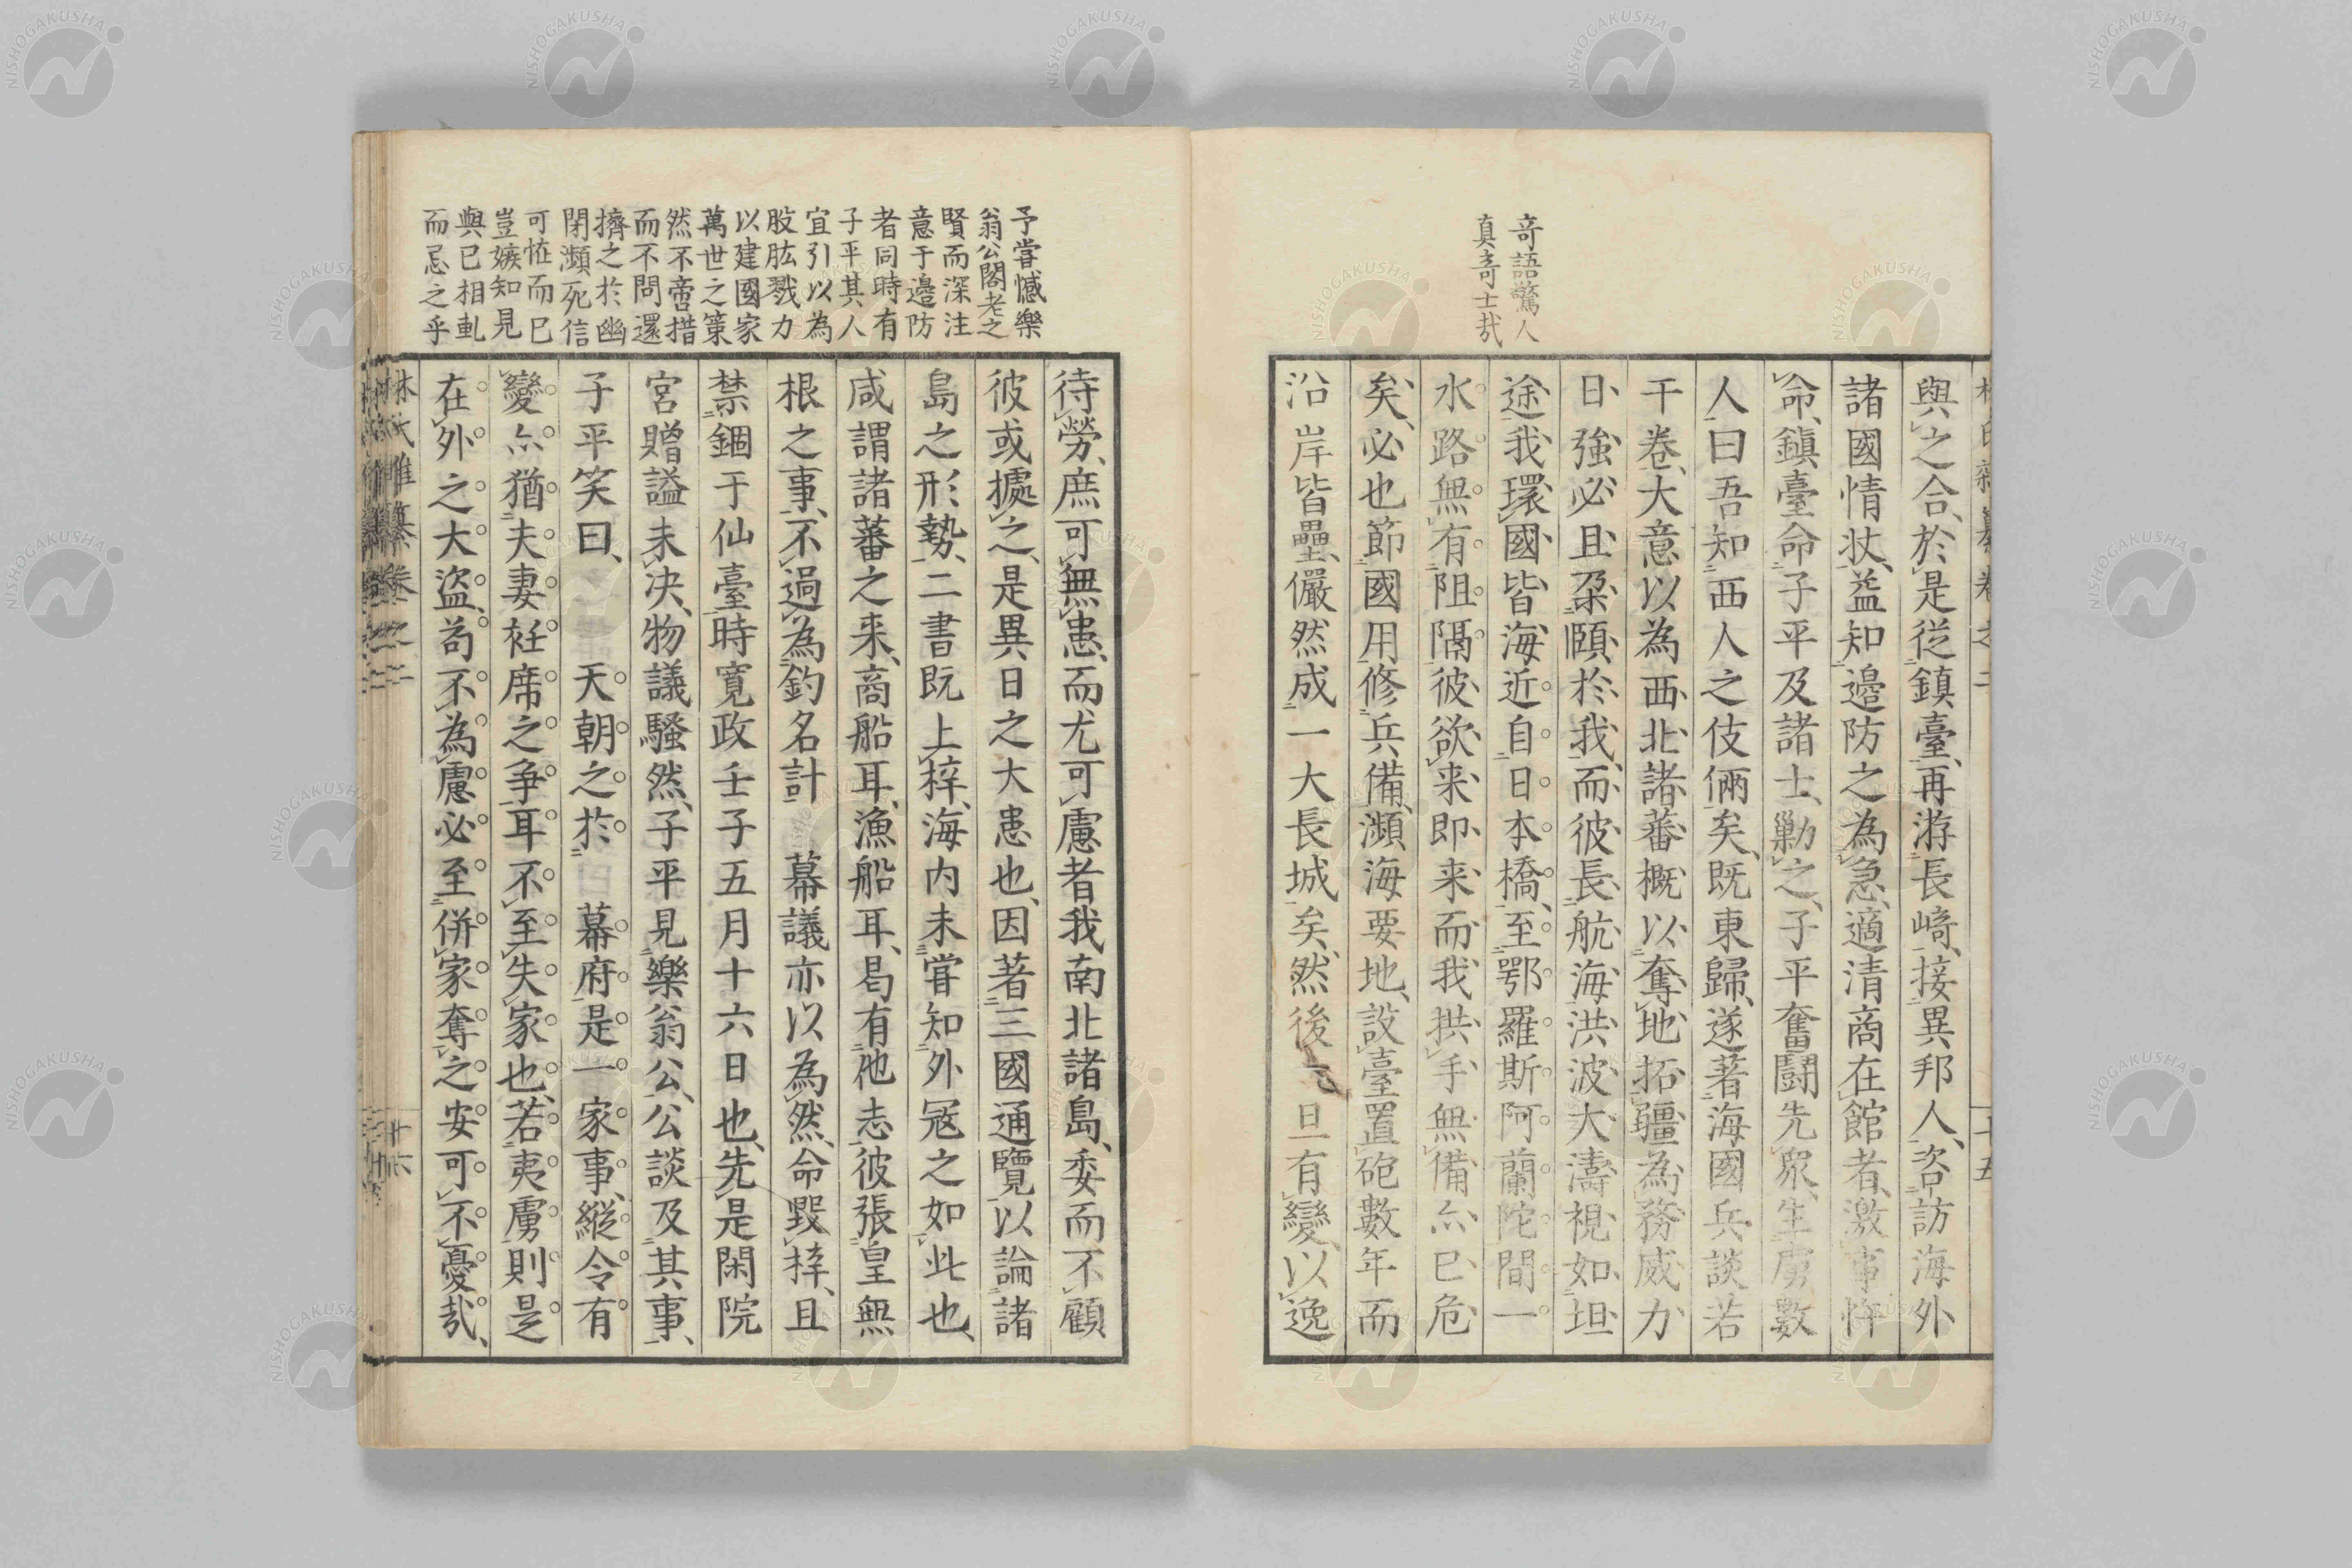 奇語驚人
真奇士哉
與之合、於是從鎮臺、再游長崎、接異邦人、咨訪海外
諸國情狀、益知邊防之為急、適清商在館者、激事忤
命、鎮臺命子平及諸士、勦之、子平奮鬪先衆、生虜數
人曰吾知西人之伎倆矣、既東歸、遂著海國兵談若
干卷、大意以為西北諸蕃概以奪地拓疆為務威力
日強必且朶頤於我、而彼長航海洪波大濤視如坦
途、我環國皆海近自日本橋、至鄂羅斯阿蘭陀間一
水路無有阻隔彼欲来即来而我拱手無備亦已危
矣、必也節國用修兵備、瀕海要地、設臺置砲數年而
沿岸皆壘、儼然成一大長城矣、然後一旦有變、以逸
予嘗憾樂
翁公閣老之
賢而深注
意于邊防
者同時有
子平其人
宜引以為
股肱戮力
以建國家
萬世之策
然不啻措
而不問還
擠之於幽
閉瀕死信
可恠而已
豈嫉知見
與已相軋
而忌之乎
待勞、庶可無患、而尤可慮者我南北諸島、委而不顧
彼或據之、是異日之大患也、因著三國通覽以論諸
島之形勢、二書既上梓、海内未嘗知外冦之如此也、
咸謂諸蕃之来、商船耳、漁船耳、曷有他志彼張皇無
根之事、不過為釣名計 幕議亦以為然、命毀梓、且
禁錮于仙臺、時寬政壬子五月十六日也、先是閑院
宮贈謚未决、物議騷然、子平見樂翁公、公談及其事、
子平笑曰、 天朝之於 幕府是一家事、縱令有
變亦猶夫妻衽席之爭耳不至失家也、若夷虜則是
在外之大盜、苟不為慮必至併家奪之安可不憂哉、
林氏雜纂卷之二
十六